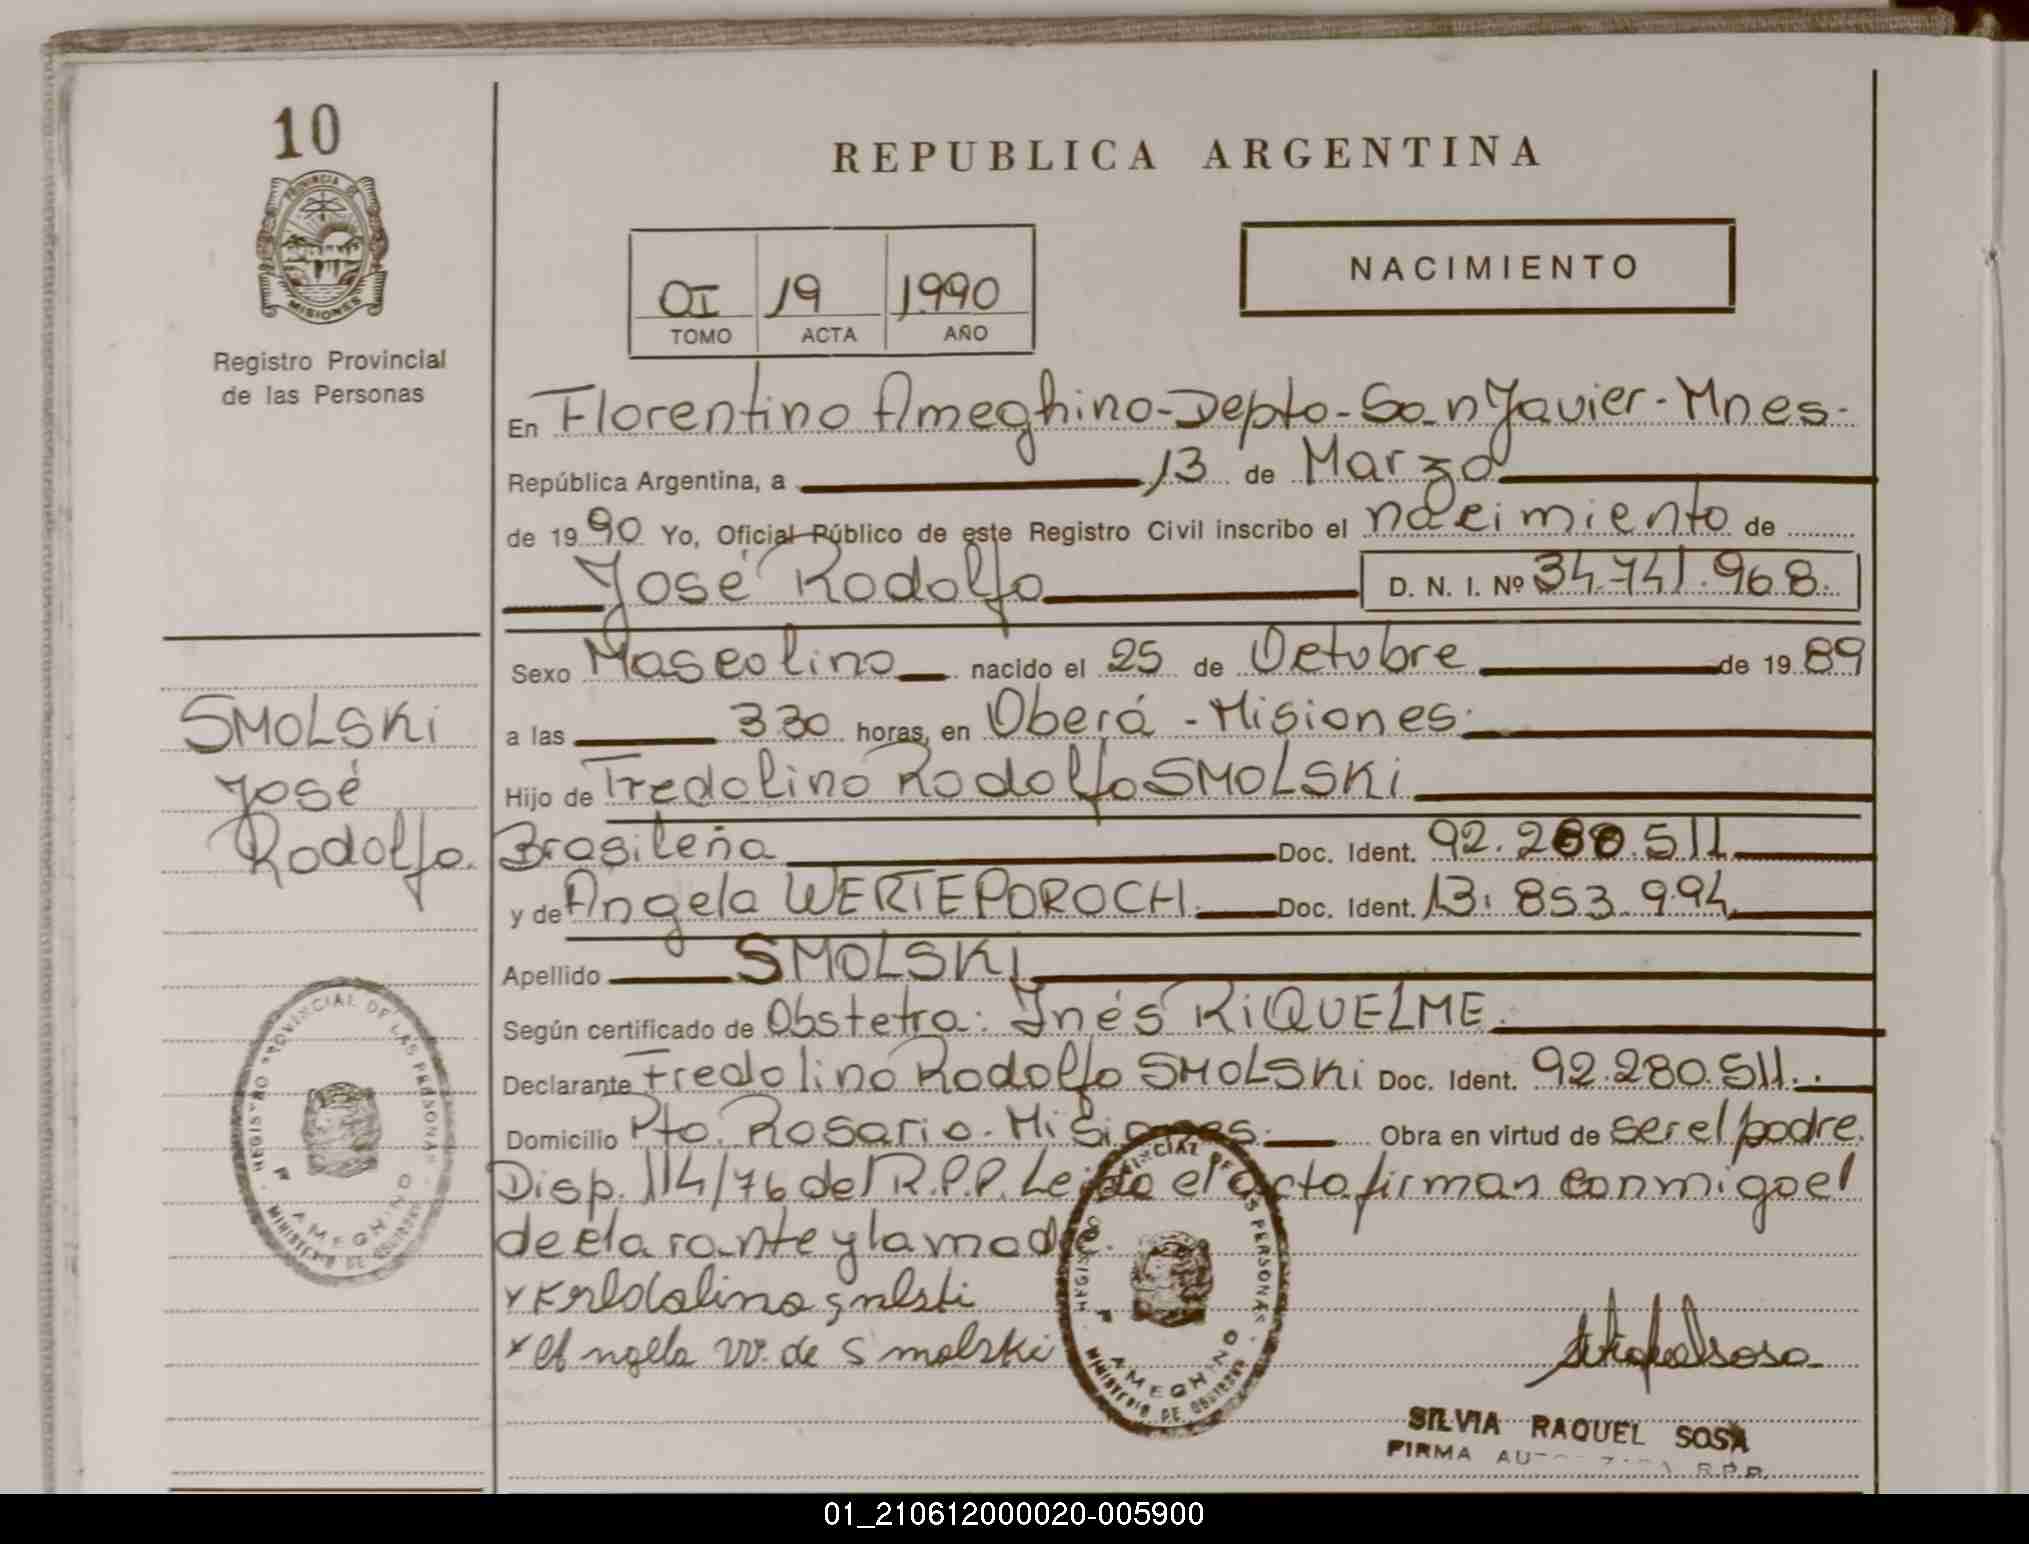 10
PROVINCIA DE
MISIONES
Registro Provincial
de las Personas
REPUBLICA ARGENTINA
OI 19 1990
TOMO ACTA AÑO
NACIMIENTO
En Florentino Ameghino-Depto-San Javier-Mnes-
República Argentina, a 13 de Marzo
de 1990 Yo, Oficial Público de este Registro Civil inscribo el nacimiento de
José Rodolfo D. N. I. Nº 34.741.968.
Sexo Mascolino nacido el 25 de Octubre de 1989
a las 3.30 horas, en Oberá - Misiones.
Hijo de Fredolino Rodolfo SMOLSKi
Brasileña Doc. Ident. 92.280.511
y de Angela WERTEPOROCH. Doc. Ident. 13.853.994
Apellido SMOLSKI
Según certificado de Obstetra: Inés RiQUELME.
Declarante Fredolino Rodolfo SMOLSKi Doc. Ident. 92.280.511.
Domicilio Pto. Rosario. Misiones. Obra en virtud de ser el padre.
Disp. 114/76 del R.P.P. Leido el acta firman conmigo el
declarante y la madre.
x Angela W. de Smolski
SMOLSKi
José
Rodolfo.
REGISTRO PROVINCIAL DE LAS PERSONAS
F. AMEGHINO
MINISTERIO DE GOBIERNO
REGISTRO PROVINCIAL DE LAS PERSONAS
F. AMEGHINO
MINISTERIO DE GOBIERNO
SILVIA RAQUEL SOSA
FIRMA R.P.P.
01_210612000020-005900